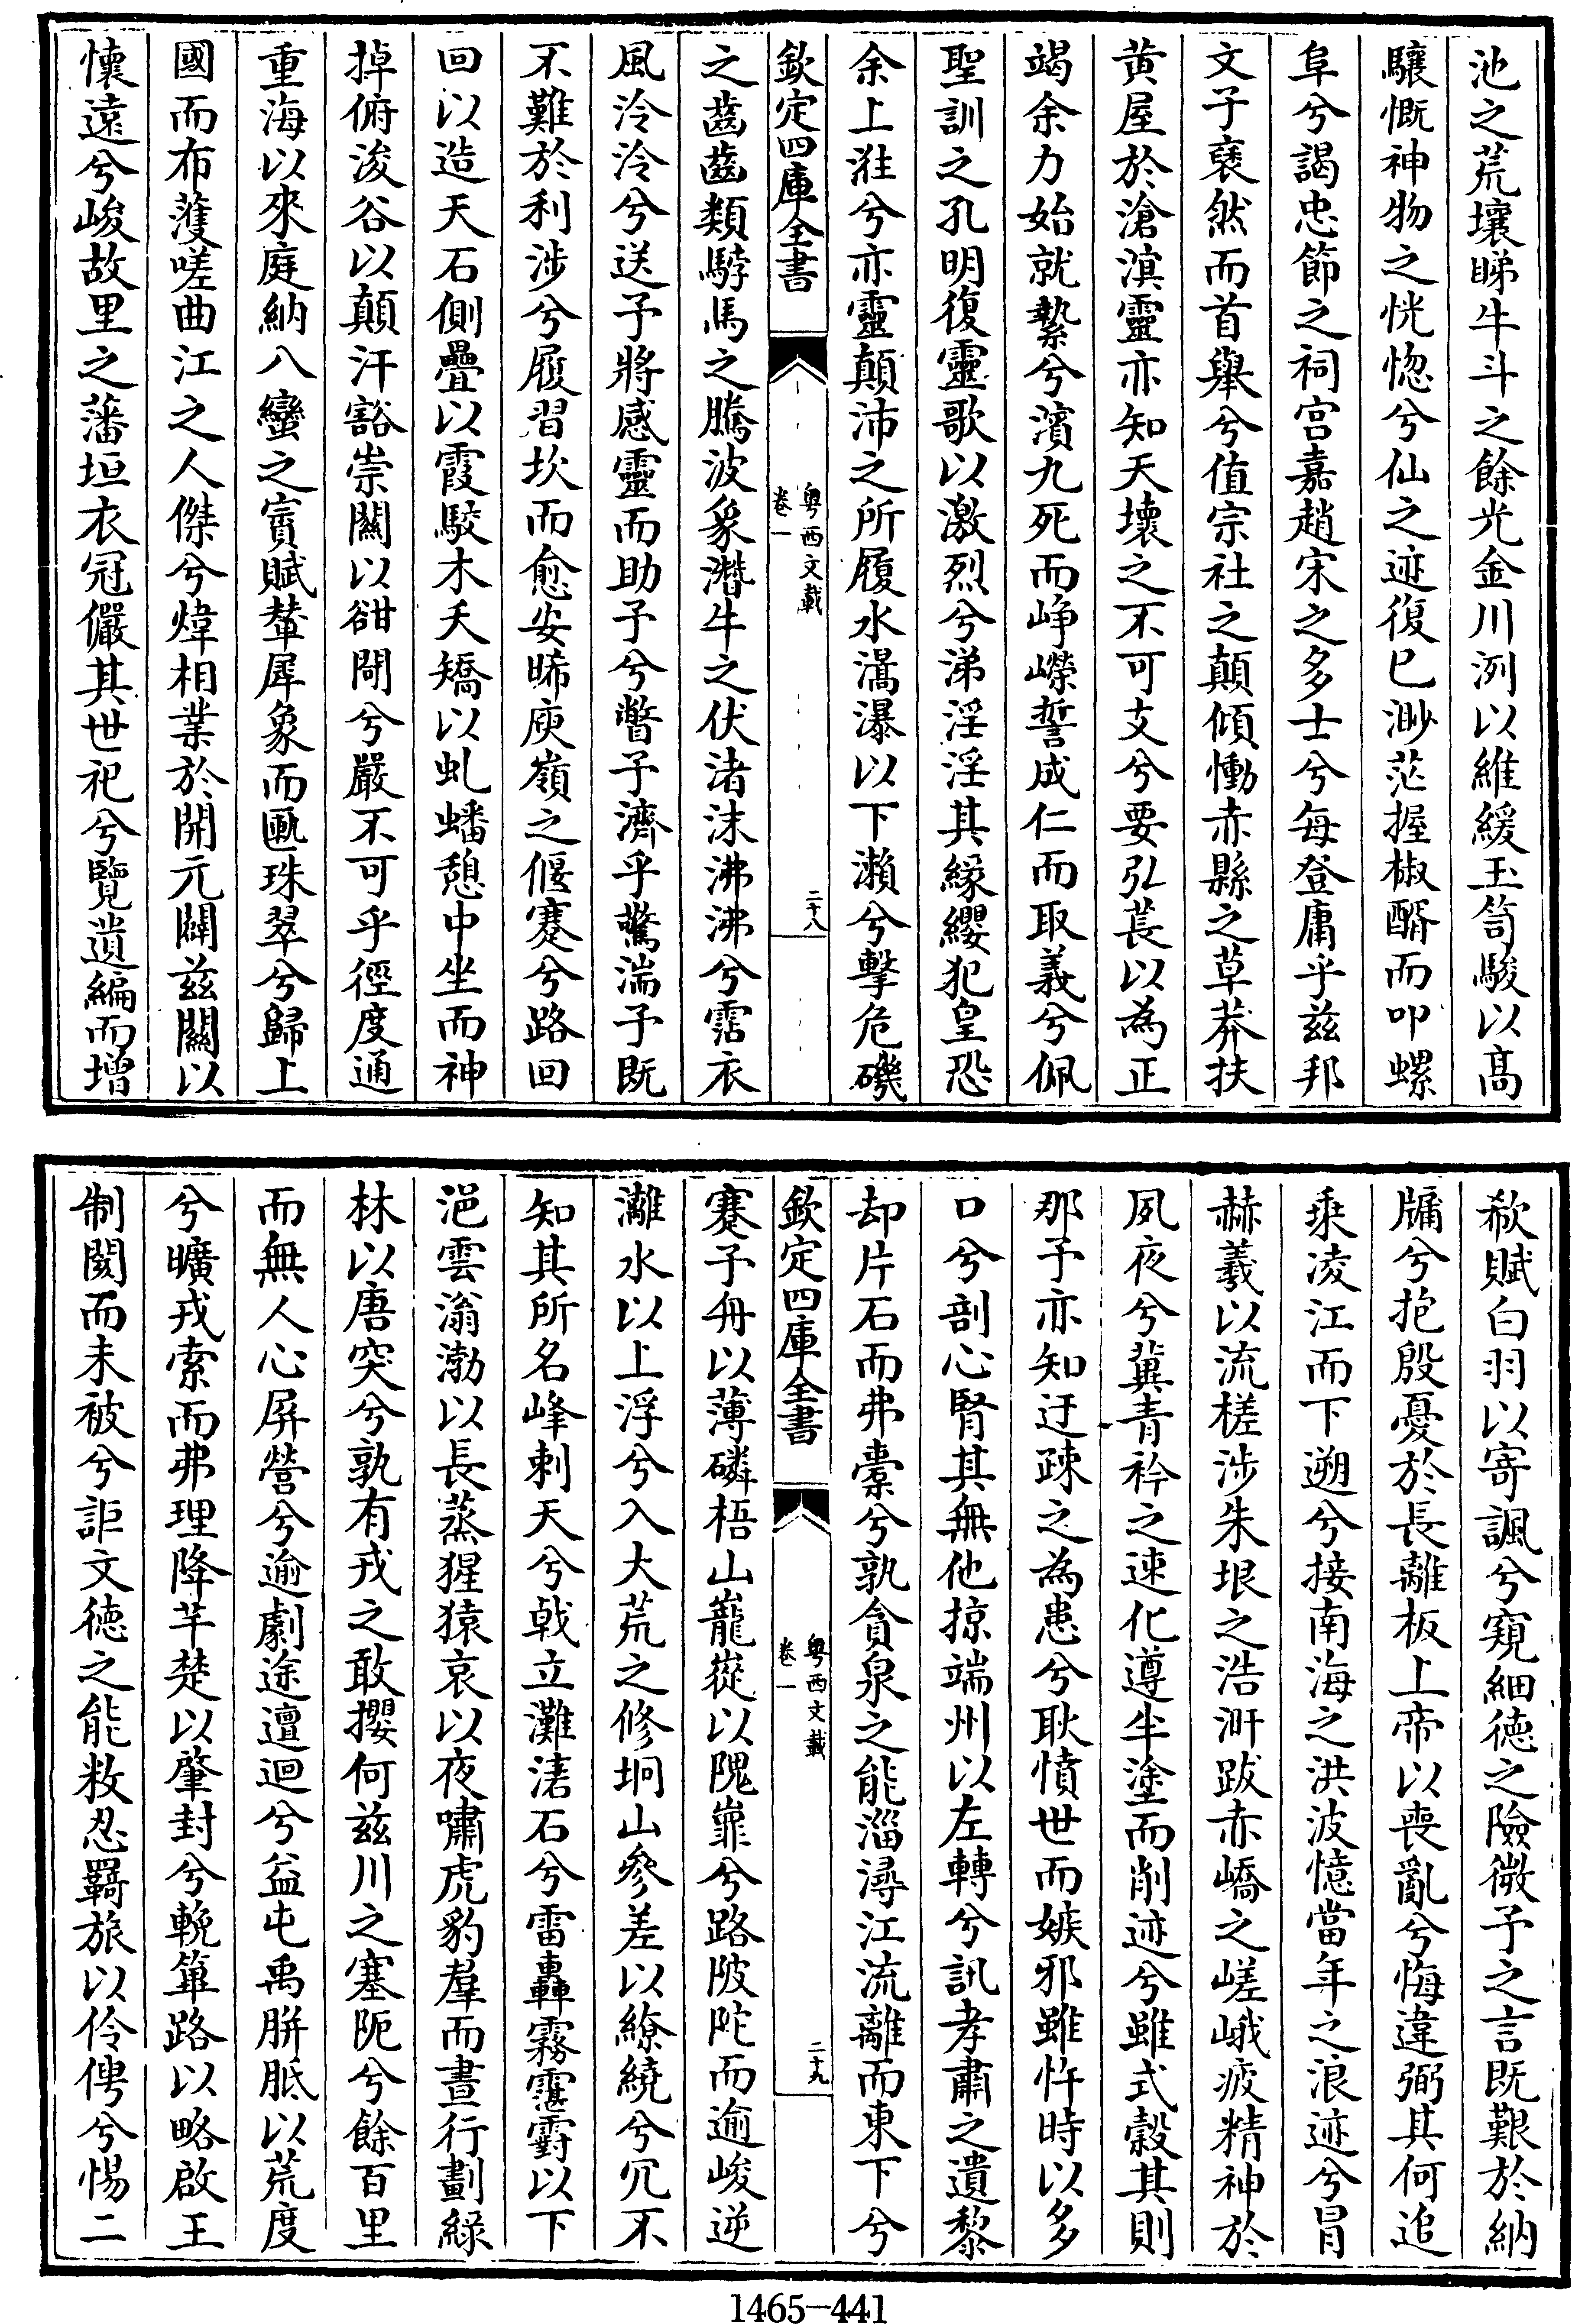 池之荒壤睇牛斗之餘光金川洌以維緩玉笥駿以髙
驤慨神物之恍惚兮仙之迹復已渺茫握椒醑而叩螺
阜兮謁忠節之祠宫嘉趙宋之多士兮每登庸乎兹邦
文子裦然而首舉兮值宗社之顛傾慟赤縣之草莽扶
黄屋於滄溟靈亦知天壞之不可支兮要弘萇以為正
竭余力始就縶兮濱九死而崢嶸誓成仁而取義兮佩
聖訓之孔明復靈歌以激烈兮涕淫淫其緣纓犯皇恐
余上㴑兮亦靈顛沛之所履水濿瀑以下瀨兮擊危磯
欽定四庫全書
粤西文載
卷一
二十八
之齒齒類騎馬之騰波象潛牛之伏渚沫沸沸兮霑衣
風泠泠兮送予將感靈而助予兮瞥予濟乎驚湍予既
不難於利涉兮履習坎而愈安晞庾嶺之偃蹇兮路回
回以造天石側疊以霞駮木夭矯以虬蟠憩中坐而神
掉俯浚谷以顛汗豁崇闗以谽閜兮嚴不可乎徑度通
重海以來庭納八蠻之賓賦輦犀象而匭珠翠兮歸上
國而布濩嗟曲江之人傑兮煒相業於開元闢兹闗以
懷遠兮峻故里之藩垣衣冠儼其世祀兮覽遺編而增
欷賦白羽以寄諷兮窺細德之險微予之言既艱於納
牖兮抱殷憂於長離板上帝以喪亂兮悔違弼其何追
乘凌江而下遡兮接南海之洪波憶當年之浪迹兮冒
赫羲以流槎涉朱垠之浩汧跋赤嶠之嵯峨疲精神於
夙夜兮冀青衿之速化遵半塗而削迹兮雖式榖其則
那予亦知迂疎之為患兮耿憤世而嫉邪雖忤時以多
口兮剖心腎其無他掠端州以左轉兮訊孝肅之遺黎
却片石而弗橐兮孰貪泉之能淄潯江流離而東下兮
欽定四庫全書
粤西文載
卷一
二十九
蹇予舟以薄磷梧山巃嵸以隗嶵兮路陂陀而逾峻逆
灕水以上浮兮入大荒之修坰山參差以繚繞兮冗不
知其所名峰刺天兮戟立灘濽石兮雷轟霧霮䨴以下
浥雲滃渤以長蒸猩猿哀以夜嘯虎豹羣而晝行劃緑
林以唐突兮孰有戎之敢攖何兹川之塞阨兮餘百里
而無人心屏營兮逾劇途邅迴兮益屯禹胼胝以荒度
兮曠戎索而弗理降芊楚以肇封兮輓篳路以略啟王
制闋而未被兮詎文徳之能敉忍羇旅以伶俜兮惕二
1465-441